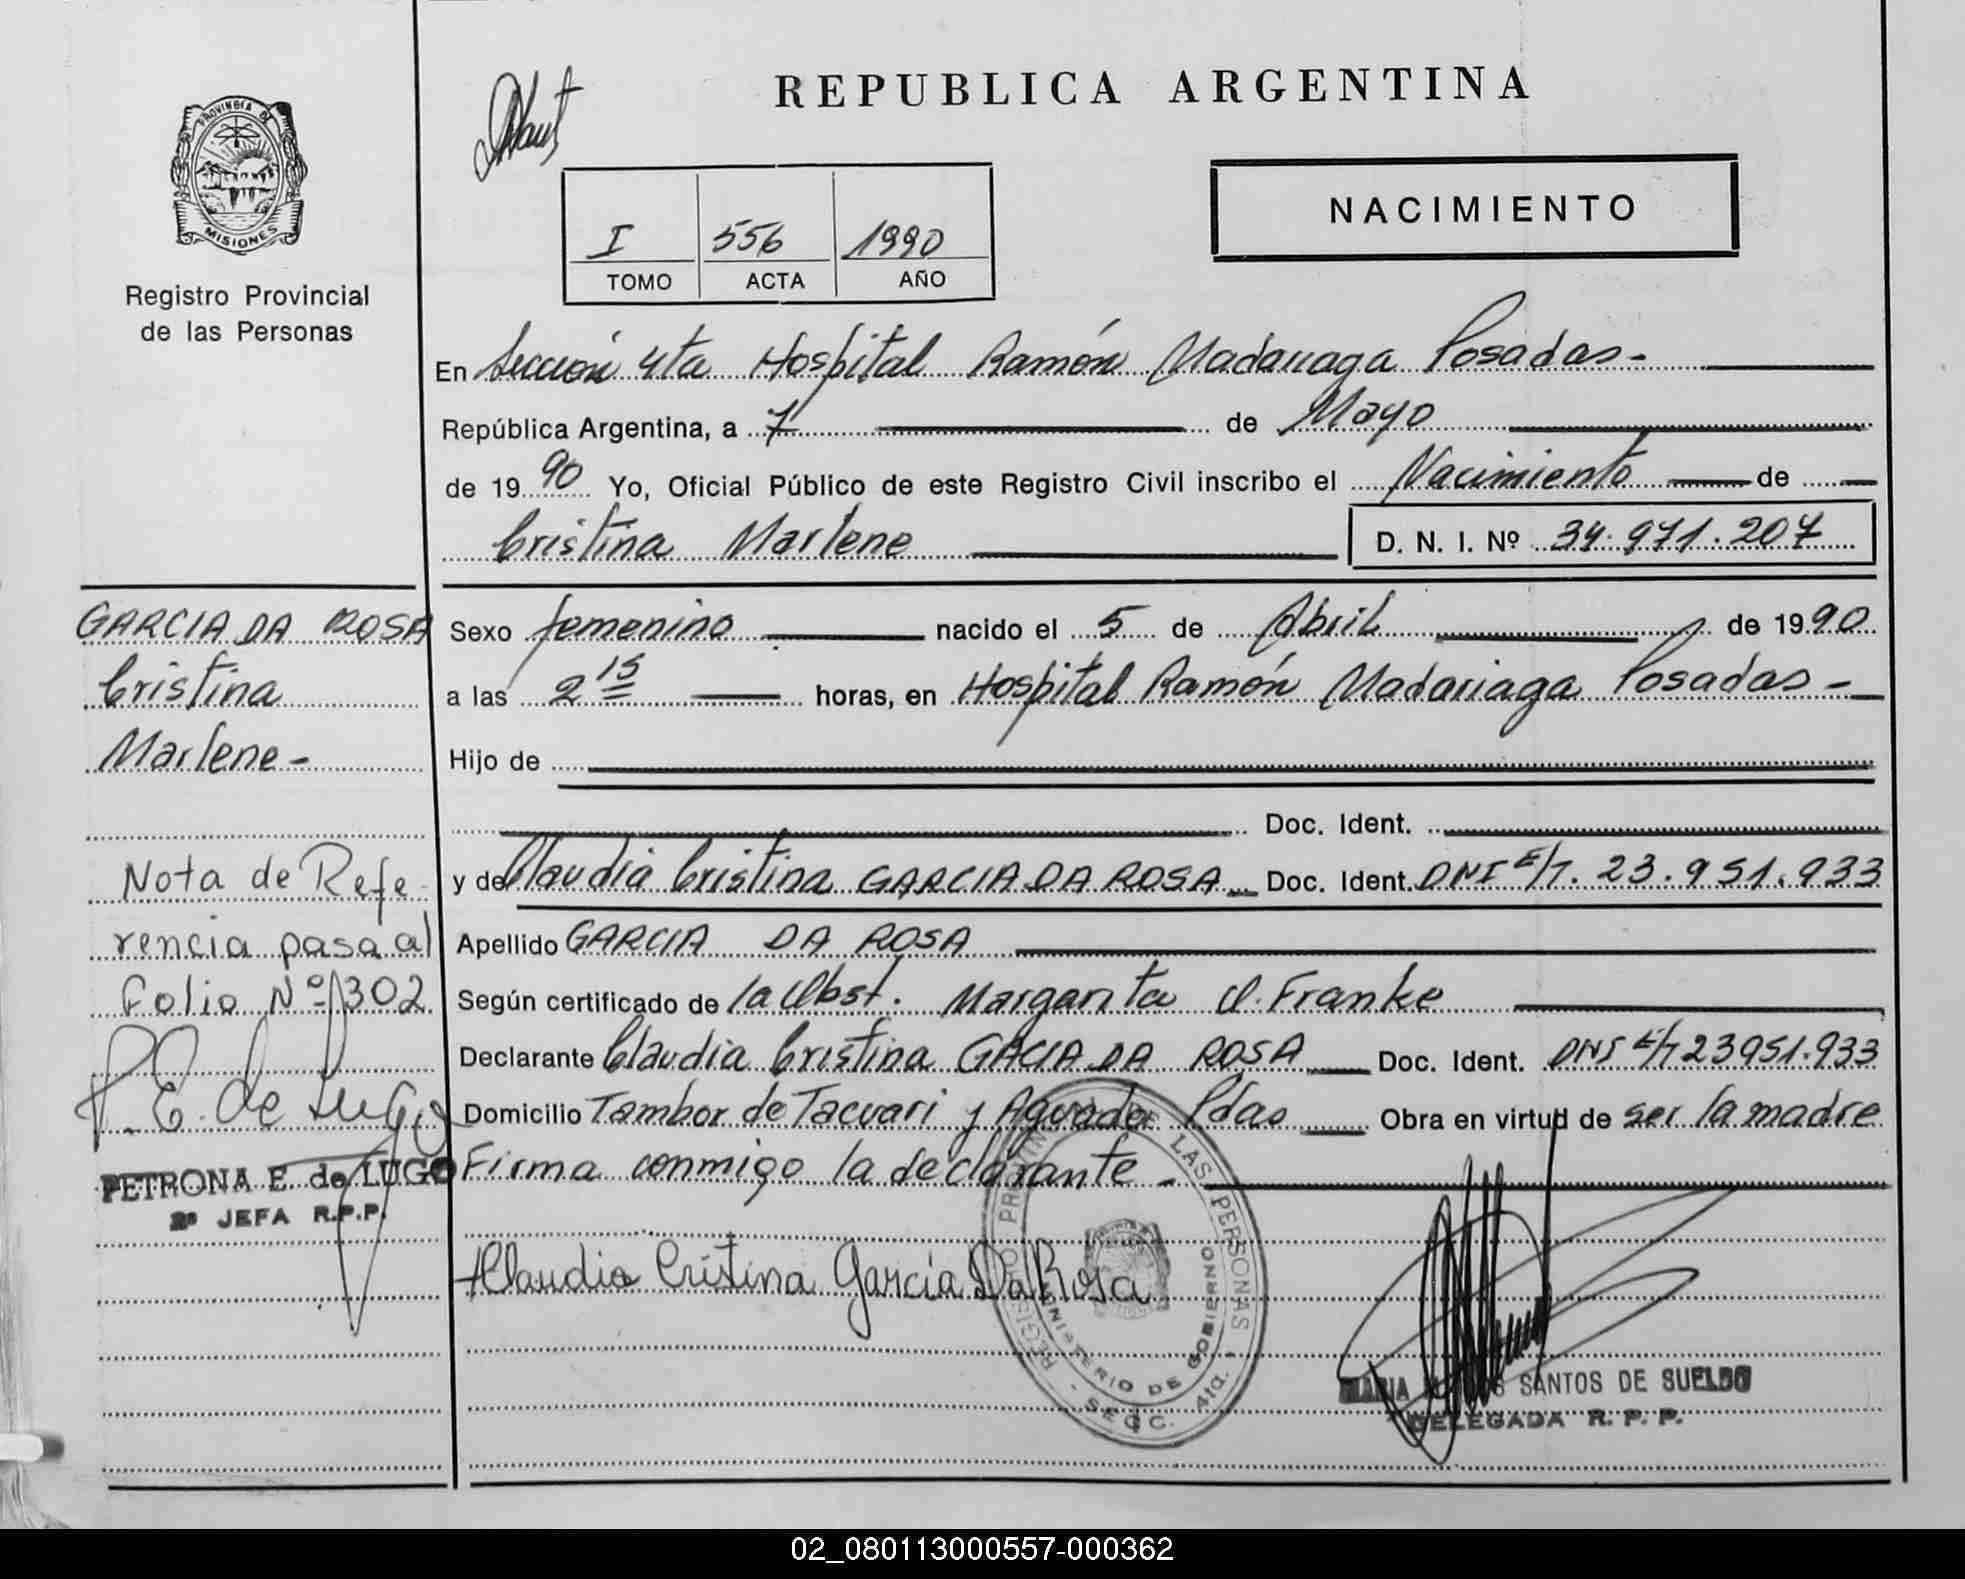 REPUBLICA ARGENTINA
PROVINCIA DE
MISIONES
Registro Provincial
de las Personas
I 556 1990
TOMO ACTA AÑO
NACIMIENTO
En Sección 4ta Hospital Ramón Madariaga Posadas-
República Argentina, a 7 de Mayo
de 1990 Yo, Oficial Público de este Registro Civil inscribo el Nacimiento de
Cristina Marlene D. N. I. Nº 34.971.207
GARCIA DA ROSA
Cristina
Marlene-
Nota de Refe-
rencia pasa al
Folio Nº 302
P. E. de Lugo
PETRONA E. de LUGO
2º JEFA R.P.P.
Sexo femenino nacido el 5 de Abril de 1990
a las 2 15 horas, en Hospital Ramón Madariaga Posadas-
Hijo de
Doc. Ident.
y de Claudia Cristina GARCIA DA ROSA Doc. Ident. DNI E/T. 23.951.933
Apellido GARCIA DA ROSA
Según certificado de la Obst. Margarita Franke
Declarante Claudia Cristina GACIA DA ROSA Doc. Ident. DNI E/T 23951.933
Domicilio Tambor de Tacuari y Aguado Pdas Obra en virtud de ser la madre
Firma conmigo la declarante-
Claudia Cristina García Da Rosa
REGISTRO PROVINCIAL DE LAS PERSONAS
MINISTERIO DE GOBIERNO
- SECC. 4ta.
MARIA SANTOS DE SUELDO
DELEGADA R. P. P.
02_080113000557-000362